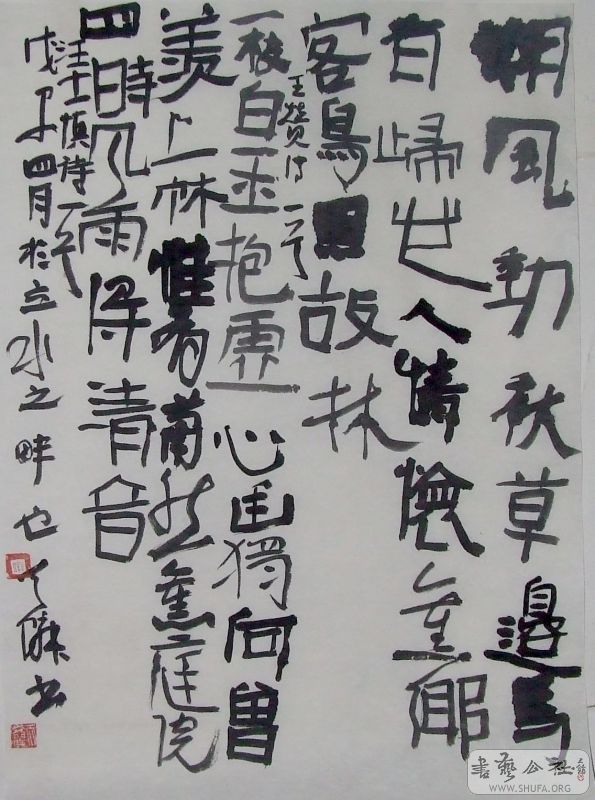 朔風動秋草邊馬
有歸心人情懷舊鄉
客鳥思故林
王贊詩一首
一枝白玉抱虛心幽獨何曾
羨上林惟有蕭然舊庭院
四時風雨得清音
汪士慎詩一首
戊子四月於立水之畔也 書
書藝公社
WWW.SHUFA.ORG